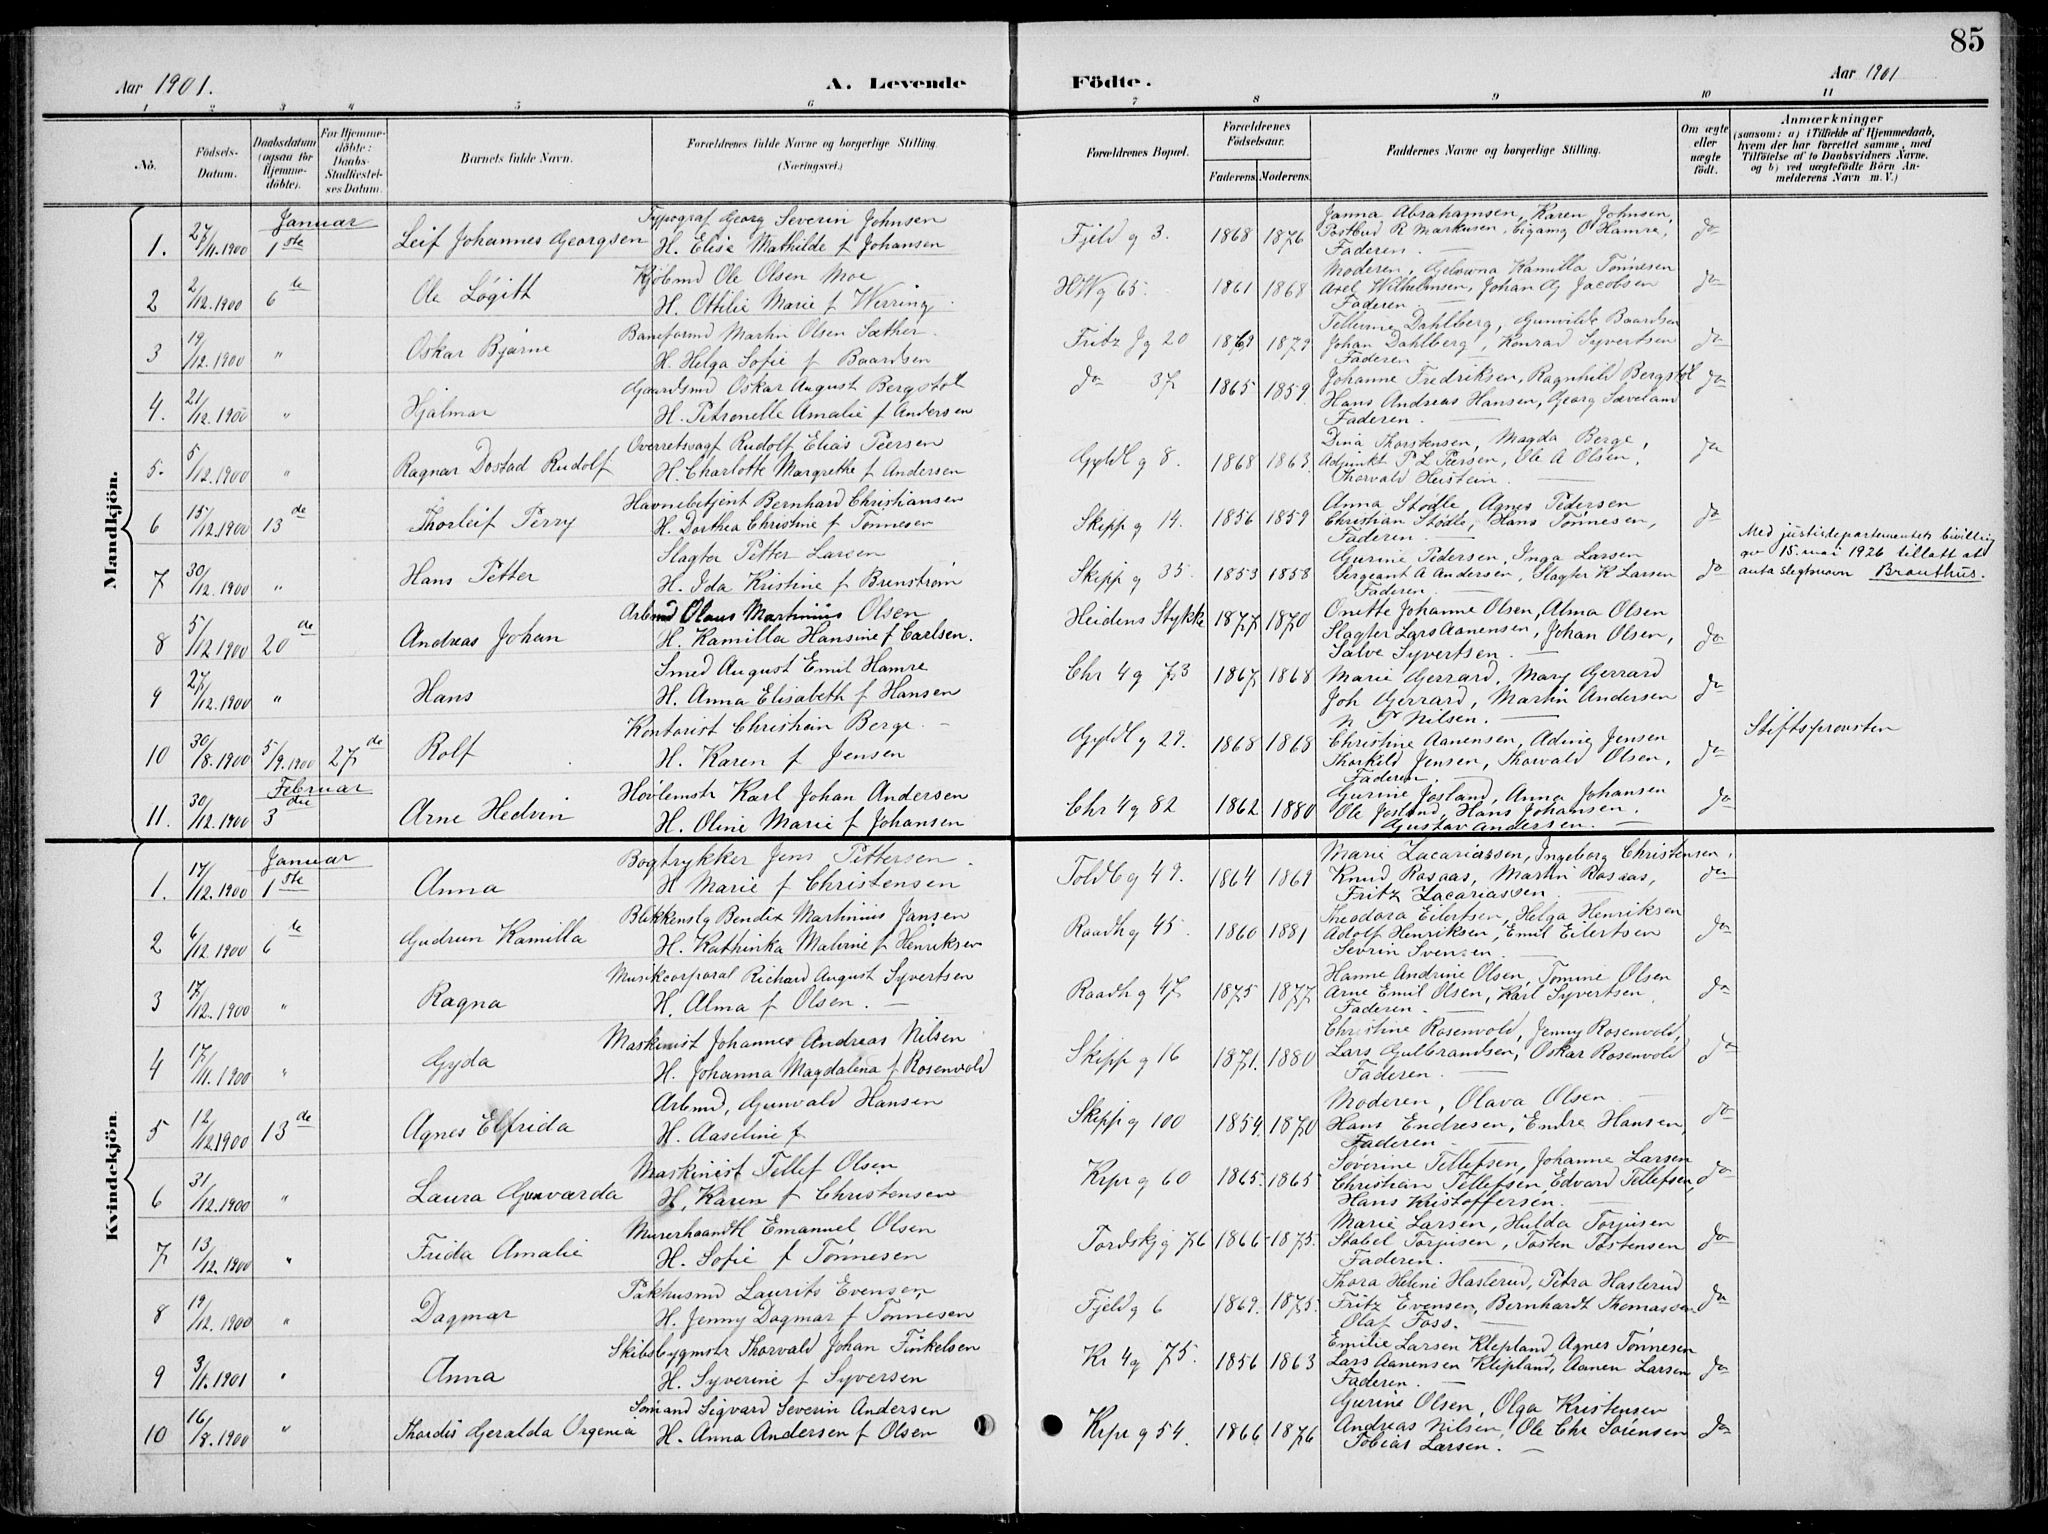 85
Aar 1901. A. Levende Födte. Aar 1901
1 2 3 4 5 6 7 8 9 10 11
No.
Födsels-
Datum.
Daabsdatum
(ogsaa för
Hjemme-
döbte).
For Hjemme-
döbte:
Daabs-
Stadfæstel-
ses Datum.
Barnets fulde Navn.
Forældrenes fulde Navne og borgerlige Stilling.
(Næringsvei.)
Forældrenes Bopæl.
Forældrenes
Födselsaar.
Faderens. Moderens.
Faddernes Navne og borgerlige Stilling.
Om ægte
eller
uægte
födt.
Anmærkninger
(saasom: a) i Tilfælde af Hjemmedaab,
hvem der har forrettet samme, med
Tilföielse af to Daabsvidners Navne.
og b) ved uægtefödte Börn An-
melderens Navn m. V.)
Mandkjön.
Januar
1. 27/11.1900 1ste Leif Johannes Georgsen
Typograf Georg Severin Johnsen
H. Elise Mathilde f Johansen
Fjeld g 3. 1868 1876
Janna Abrahamsen, Karen Johnsen,
Postbud R Markusen, Sigamg O Hamre,
Faderen. do
2 2/12.1900 6te Ole Løgith
Kjøbmd Ole Olsen Moe
H. Ottilie Marie f Werring.
HWg 65. 1861 1868
Moderen, Kamilla Tønnesen
Axel Wilhelmsen, Johan Ag Jacobsen
Faderen. do
3 19/12.1900 " Oskar Bjarne
Baneformd Martin Olsen Sæther.
H. Helga Sofie f Baardsen
Fritz Jg 20 1869 1879
Dahlberg, Gunvilde Baardsen
Johan Dahlberg, Konrad Syvertsen
Faderen. do
4. 21/12.1900 " Hjalmar
Gaardsmd Oskar August Bergstøl
H. Petronelle Amalie f Andersen
do 37 1865 1859.
Johanne Fredriksen, Ragnhild Bergstøl
Hans Andreas Hansen, Georg Sæveland
Faderen. do
5. 5/12.1900 " Ragnar Dostad Rudolf
Overretssagf Rudolf Elias Peersen
H. Charlotte Margrethe f Andersen
Gyldl g 8. 1868 1863.
Dina Thorstensen, Magda Berge,
Adjunkt P L Peersen, Ole A Olsen,
Thorvald Heistein. do
6 15/12.1900 13de Thorleif Perry
Havnebetjent Bernhard Christiansen
H. Dorthea Christine f Tønnesen
Skipp g 14. 1856 1859
Anna Stødle, Agnes Pedersen
Christian Stødle, Hans Tønnesen,
Faderen. do
7 30/12.1900 " Hans Petter
Slagter Petter Larsen
H. Ida Kristine f Brenstrøm
Skipp g 35. 1853 1858
Gurine Pedersen, Inga Larsen
Sergeant A Andersen, Slagter K Larsen
Faderen. do
Med justisdepartementets bivilling
av 15. mai 1926 tillatt at
anta slegtsnavn Brauthus.
8 5/12.1900 20de Andreas Johan
Arbmd Olaus Martinius Olsen
H. Kamilla Hansine f Carlsen.
Heidens Stykke 1877 1870
Onette Johanne Olsen, Alma Olsen
Slagter Lars Aanensen, Johan Olsen,
Salve Syvertsen. do
9 27/12.1900 " Hans
Smed August Emil Hamre
H. Anna Elisabeth f Hansen
Chr 4 g 73 1867 1868
Marie Gerrard, Mary Gerrard
Joh Gerrard, Martin Andersen
N P Nilsen. do
10 30/8.1900 5/9.1900 27de Rolf
Kontorist Christian Berge.
H. Karen f Jensen
Gyldl g 29. 1868 1868
Christine Aanensen, Jensen
Thorkild Jensen, Thorvald Olsen,
Faderen. do
Stiftsprousten
Februar
11. 30/12.1900 3die Arne Hedvin
Høvlemstr Karl Johan Andersen
H. Oline Marie f Johansen
Chr 4 g 82 1862 1880
Gurine Josland, Anna Johansen
Ole Josland, Hans Johansen.
Gustav Andersen. do
Kvindekjön.
Januar
1. 17/12.1900 1ste Anna
Bogtrykker Jens Pettersen.
H Marie f Christensen
Toldb g 49. 1864 1869
Marie Zacariassen, Ingeborg Christensen,
Knud Rosaas, Martin Rosaas,
Fritz Zacariassen do
2 6/12.1900 6te Gudrun Kamilla
Blikkenslg Bendix Martinius Jansen
H. Kathinka Malvine f Henriksen
Raadh g 45. 1860 1881
Theodora Eilertsen, Helga Henriksen
Adolf Henriksen, Emil Eilertsen
Sevrin Svensen. do
3 17/12.1900 " Ragna
Musikcorporal Richard August Syvertsen
H. Alma f Olsen.
Raadh g 47 1875 1877
Hanne Andrine Olsen, Tomine Olsen
Arne Emil Olsen, Karl Syvertsen
Faderen. do
4 17/11.1900 " Gyda
Maskinist Johannes Andreas Nilsen
H. Johanna Magdalena f Rosenvold
Skipp g 16 1871. 1880
Christine Rosenvold, Jenny Rosenvold,
Lars Gulbrandsen, Oskar Rosenvold
Faderen. do
5 12/12.1900 13de Agnes Elfrida
Arbmd, Gunvald Hansen
H. Aaseline f
Skipp g 100 1854. 1870
Moderen, Olava Olsen
Hans Endresen, Endre Hansen,
Faderen. do
6 31/12.1900 " Laura Gunvarda
Maskinist Tellef Olsen
H. Karen f Christensen
Krpr g 60 1865. 1865
Søverine Tellefsen, Johanne Larsen
Christian Tellefsen Edvard Tellefsen,
Hans Kristoffersen. do
7 13/12.1900 " Frida Amalie
Murerhaandtl Emanuel Olsen
H. Sofie f Tønnesen
Tordskj g 76 1866 1875.
Marie Larsen, Hulda Torjusen
Stabel Torjusen, Tosten Tostensen
Faderen. do
8 19/12.1900 " Dagmar
Pakhusmd Laurits Evensen
H. Jenny Dagmar f Tønnesen
Fjeld g 6 1869. 1875.
Thora Heleni Haslerud, Petra Haslerud
Fritz Evensen, Bernhardt Thomassen
Olaf Foss. do
9 3/1.1901 " Anna
Skibsbygmstr Thorvald Johan Finkelsen
H. Syverine f Syversen
Kr 4 g 75. 1856 1863
Emilie Larsen Klepland Agnes Tønnesen
Lars Aanensen Klepland, Aanen Larsen
Faderen. do
10 16/8.1900 " Thordis Geralda Orgenia
Sømand Sigvard Severin Andersen
H. Anna Andersen f Olsen
Krpr g 54. 1866 1876
Gurine Olsen, Olga Kristensen
Andreas Nilsen, Ole Chr Sørensen
Tobias Larsen. do